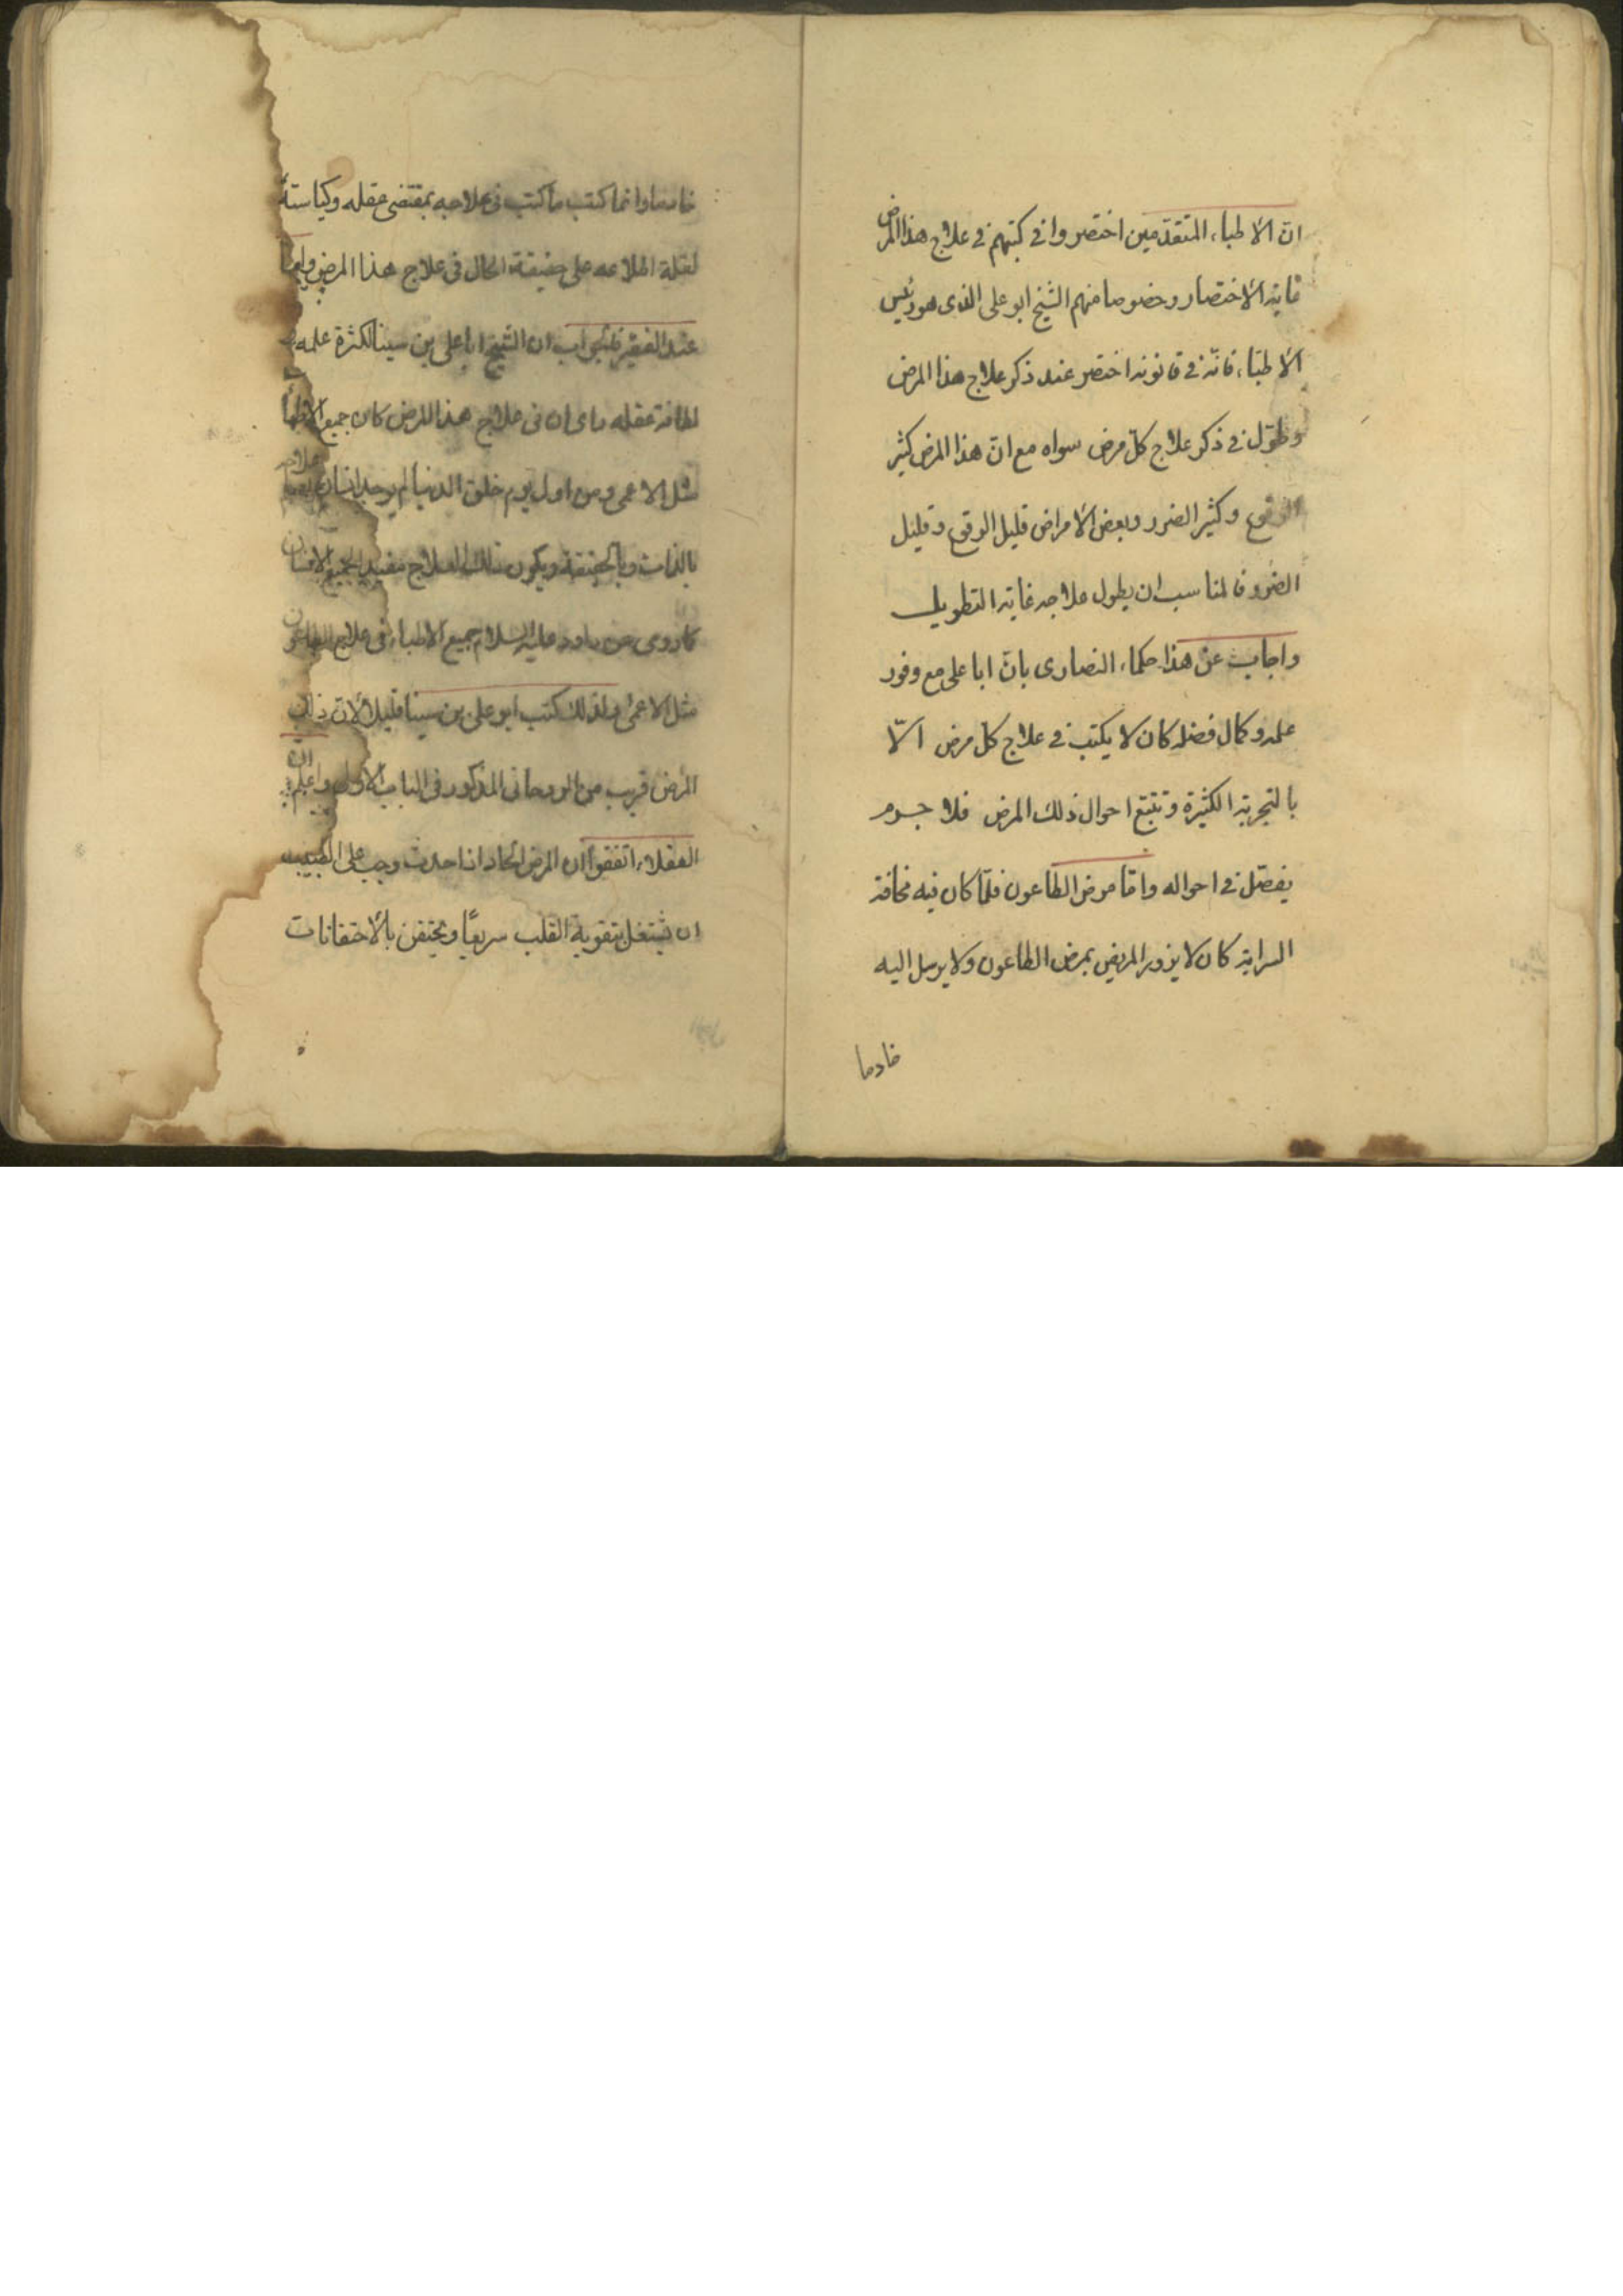 انّ الاطباء المتقدّمين اختصروا فى كتبهم فى علاج هذا المرض
غاية الاختصار وخصوصا منهم الشيخ ابو على الذى هو رئيس
الاطبّاء فانّه فى قانونه اختصر عند ذكر علاج هذا المرض
وطوّل فى ذكر علاج كلّ مرض سواه مع انّ هذا المرض كثير
الوقوع وكثير الضرر وبعض الامراض قليل الوقوع وقليل
الضرر فالمناسب ان يطول علاجه غاية التطويل
واجاب عن هذا حكماء النصارى بانّ ابا على مع وفور
علمه وكمال فضله كان لا يكتب فى علاج كل مرض الّا
بالتجربة الكثيرة وتتبّع احوال ذلك المرض فلا جرم
يفصّل فى احواله وامّا مرض الطاعون فلمّا كان فيه مخافة
السراية كان لا يزور المريض بمرض الطاعون ولا يرسل اليه
خادما
خادما وانما كتب ما كتب فى علاجه بمقتضى عقله وكياسته
لقلة اطلاعه على حقيقة الحال فى علاج هذا المرض وامّا
عند الفقير فالجواب ان الشيخ ابا على بن سينا لكثرة علمه و
لطافة عقله راى ان فى علاج هذا المرض كان جميع الاطبا
مثل الاعمى ومن اول يوم خلق الدنيا لم يوجد انسان علاجه
بالذات وبالحقيقة ويكون ذلك العلاج مفيدا لجميع الانسان
كما روى عن داود عليه السلام جميع الاطباء فى علاج الطاعون
مثل الاعمى ولذلك كتب ابو على بن سينا قليلا لانّ ذلك
المرض قريب من الروحانى المذكور فى الباب الاول واعلم ان
العقلاء اتفقوا ان المرض الحاد اذا حدث وجب على الطبيب
ان يشتغل بتقوية القلب سريعًا ويحتقن بالاحتقانات